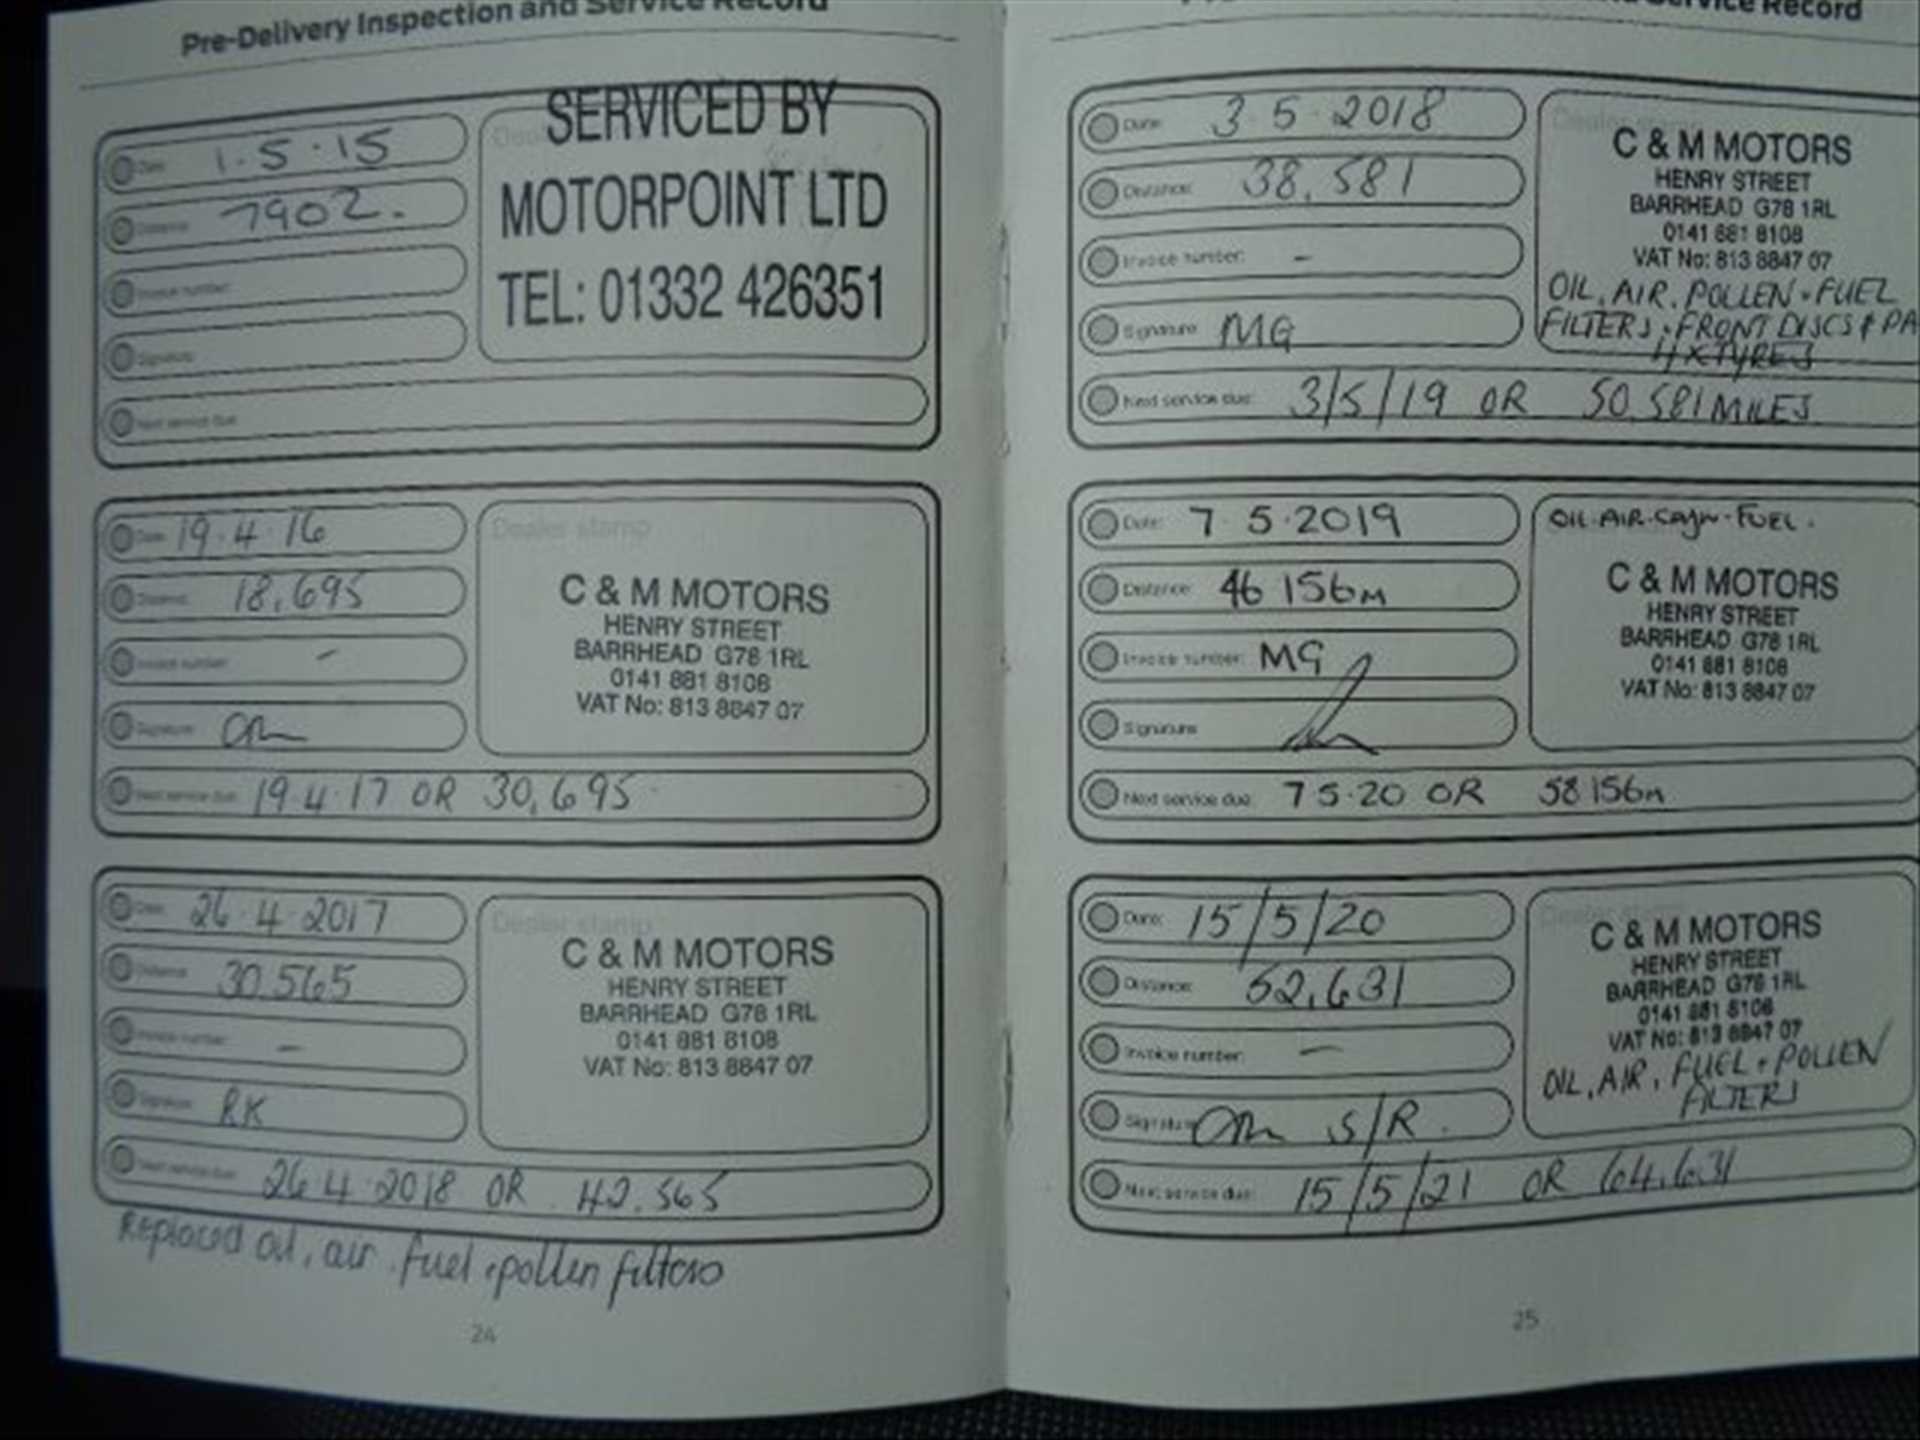 Pre-Delivery Inspection and Service Record
Date: 1.5.15
Distance: 7902.
Invoice number:
Signature:
Next service due:
Dealer
SERVICED BY
MOTORPOINT LTD
TEL: 01332 426351
Date: 19.4.16
Distance: 18,695
Invoice number: -
Signature:
Next service due: 19.4.17 OR 30,695
Dealer stamp
C & M MOTORS
HENRY STREET
BARRHEAD G78 1RL
0141 881 8108
VAT No: 813 8847 07
Date: 26.4.2017
Distance: 30,565
Invoice number: -
Signature: RK
Next service due: 26.4.2018 OR 42,565
Dealer stamp
C & M MOTORS
HENRY STREET
BARRHEAD G78 1RL
0141 881 8108
VAT No: 813 8847 07
Replaced oil, air, fuel + pollen filters
24
Service Record
Date: 3.5.2018
Distance: 38,581
Invoice number: -
Signature: MG
Next service due: 3/5/19 OR 50,581 MILES
Dealer stamp
C & M MOTORS
HENRY STREET
BARRHEAD G78 1RL
0141 881 8108
VAT No: 813 8847 07
OIL, AIR, POLLEN + FUEL
FILTERS + FRONT DISCS & PA
4 X TYRES
Date: 7.5.2019
Distance: 46 156m
Invoice number: MG
Signature:
Next service due: 7 5.20 OR 58 156m
OIL.AIR. FUEL.
C & M MOTORS
HENRY STREET
BARRHEAD G78 1RL
0141 881 8108
VAT No: 813 8847 07
Date: 15/5/20
Distance: 52,631
Invoice number: -
Signature: S/R.
Next service due: 15/5/21 OR 64,631
Dealer stamp
C & M MOTORS
HENRY STREET
BARRHEAD G78 1RL
0141 881 8108
VAT No: 813 8847 07
OIL, AIR, FUEL + POLLEN
FILTERS
25